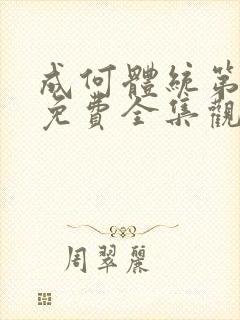 成何體統第
免費全集觀
周翠麗